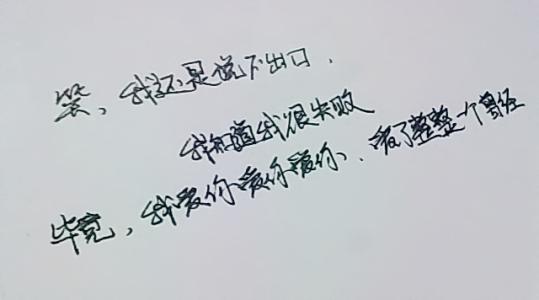 笑，我还是说不出口．
我知道我很失败
毕竟，我爱你爱你爱你、爱了整整一个曾经